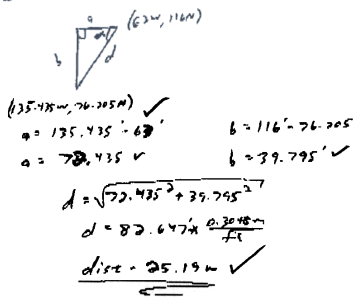 a (63W, 116N)
b α d
(135.435W, 76.205N) ✓
a = 135.435' - 63'
b = 116' - 76.205
a = 72.435 ✓
b = 39.795' ✓
d = √72.435² + 39.795²
d = 82.647' × 0.3048m
ft
dist = 25.19m ✓